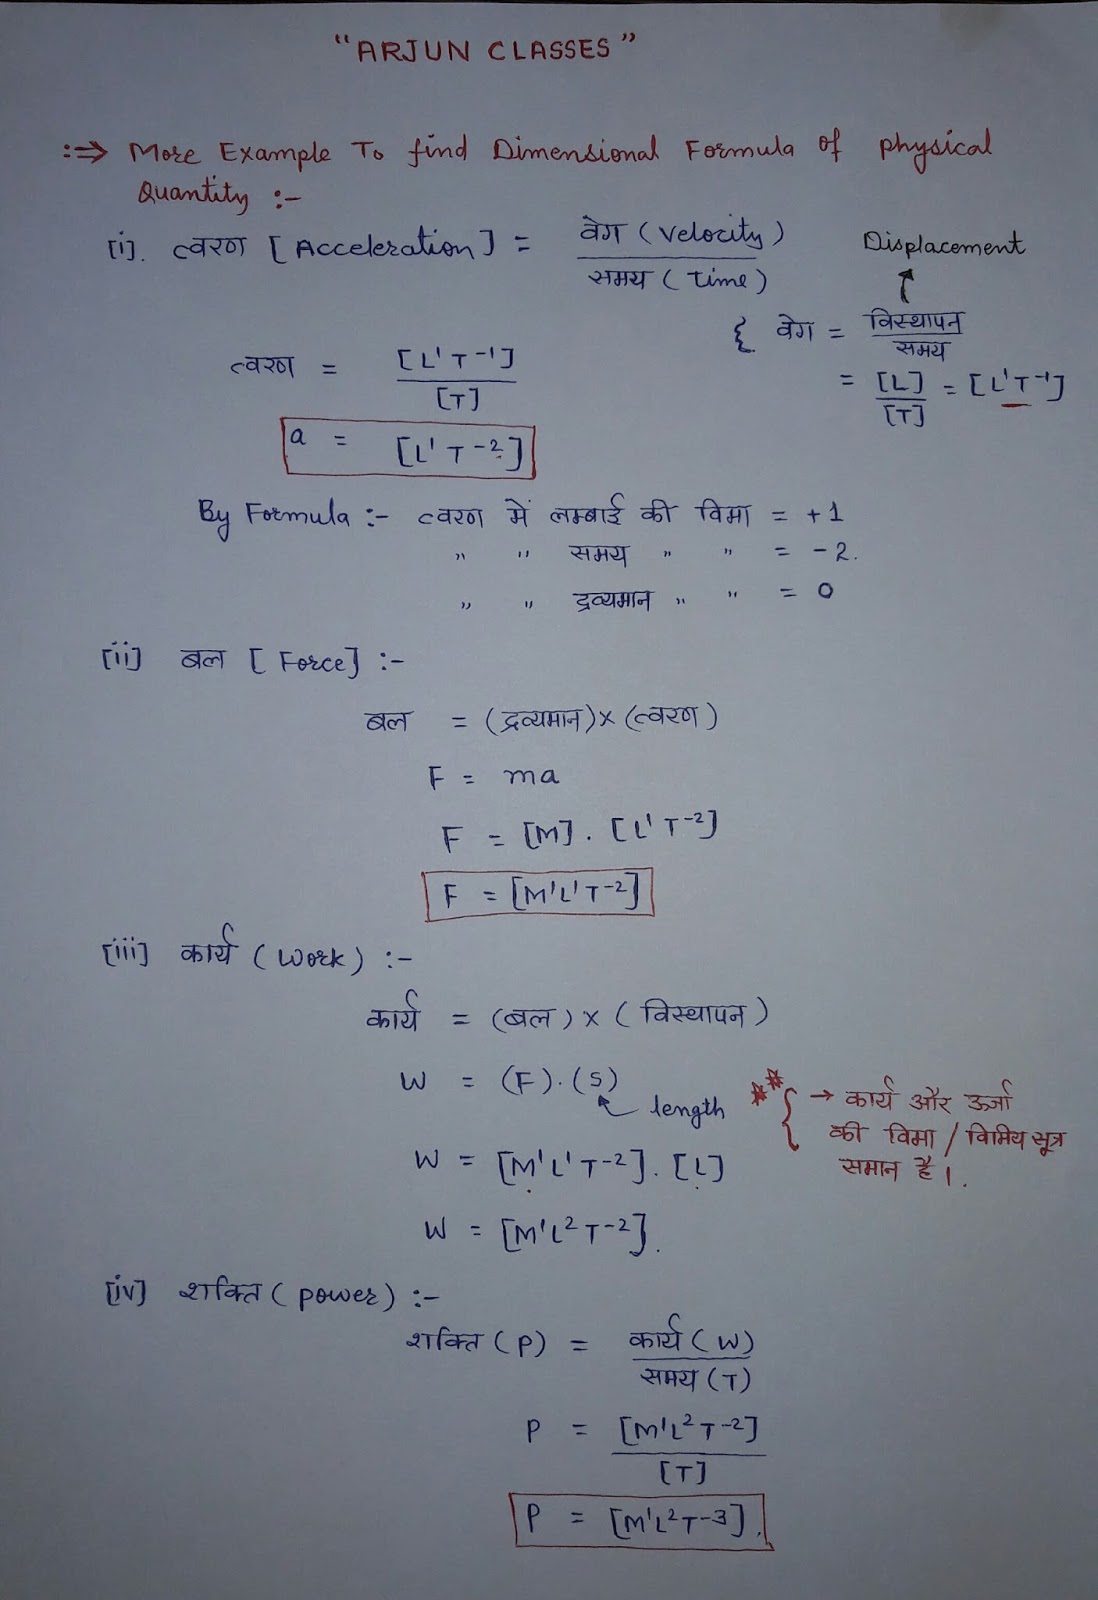 "ARJUN CLASSES"
:⇒ More Example To find Dimensional Formula of physical
Quantity :-
[i]. त्वरण [Acceleration] = वेग (velocity) / समय (time)
Displacement
↑
{ वेग = विस्थापन / समय
= [L] / [T] = [L¹T⁻¹]
त्वरण = [L¹T⁻¹] / [T]
a = [L¹T⁻²]
By Formula :- त्वरण में लम्बाई की विमा = +1
" " समय " " = -2.
" " द्रव्यमान " " = 0
[ii] बल [Force] :-
बल = (द्रव्यमान)×(त्वरण)
F = ma
F = [M]. [L¹T⁻²]
F = [M¹L¹T⁻²]
[iii] कार्य (work) :-
कार्य = (बल)×(विस्थापन)
W = (F).(S)
length
W = [M¹L¹T⁻²]. [L]
W = [M¹L²T⁻²].
** { → कार्य और ऊर्जा
की विमा / विमिय सूत्र
समान है।.
[iv] शक्ति (power) :-
शक्ति (P) = कार्य (W) / समय (T)
P = [M¹L²T⁻²] / [T]
P = [M¹L²T⁻³].